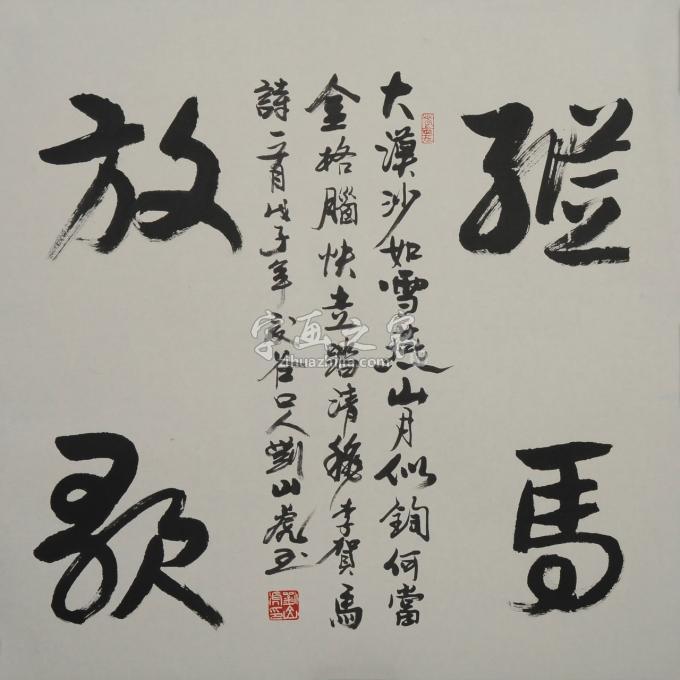 縱馬
放歌
大漠沙如雪燕山月似鉤何當
金格腦快走踏清穐李賀馬
詩一首戊子年 谷口人劉山虎书
字画之家
zihuazhijia.com